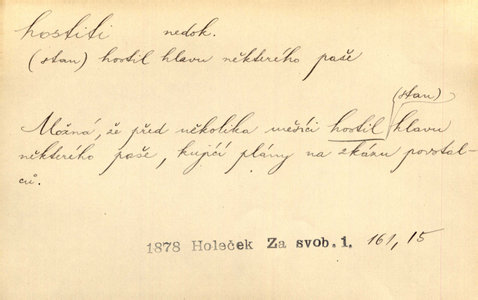 hostiti nedok.
(stan) hostil hlavu některého paše
(stan)
Možná, že před několika měsíci hostil hlavu
některého paše, kující plány na zkázu povstal-
ců.
1878 Holeček Za svob. 1. 161, 15